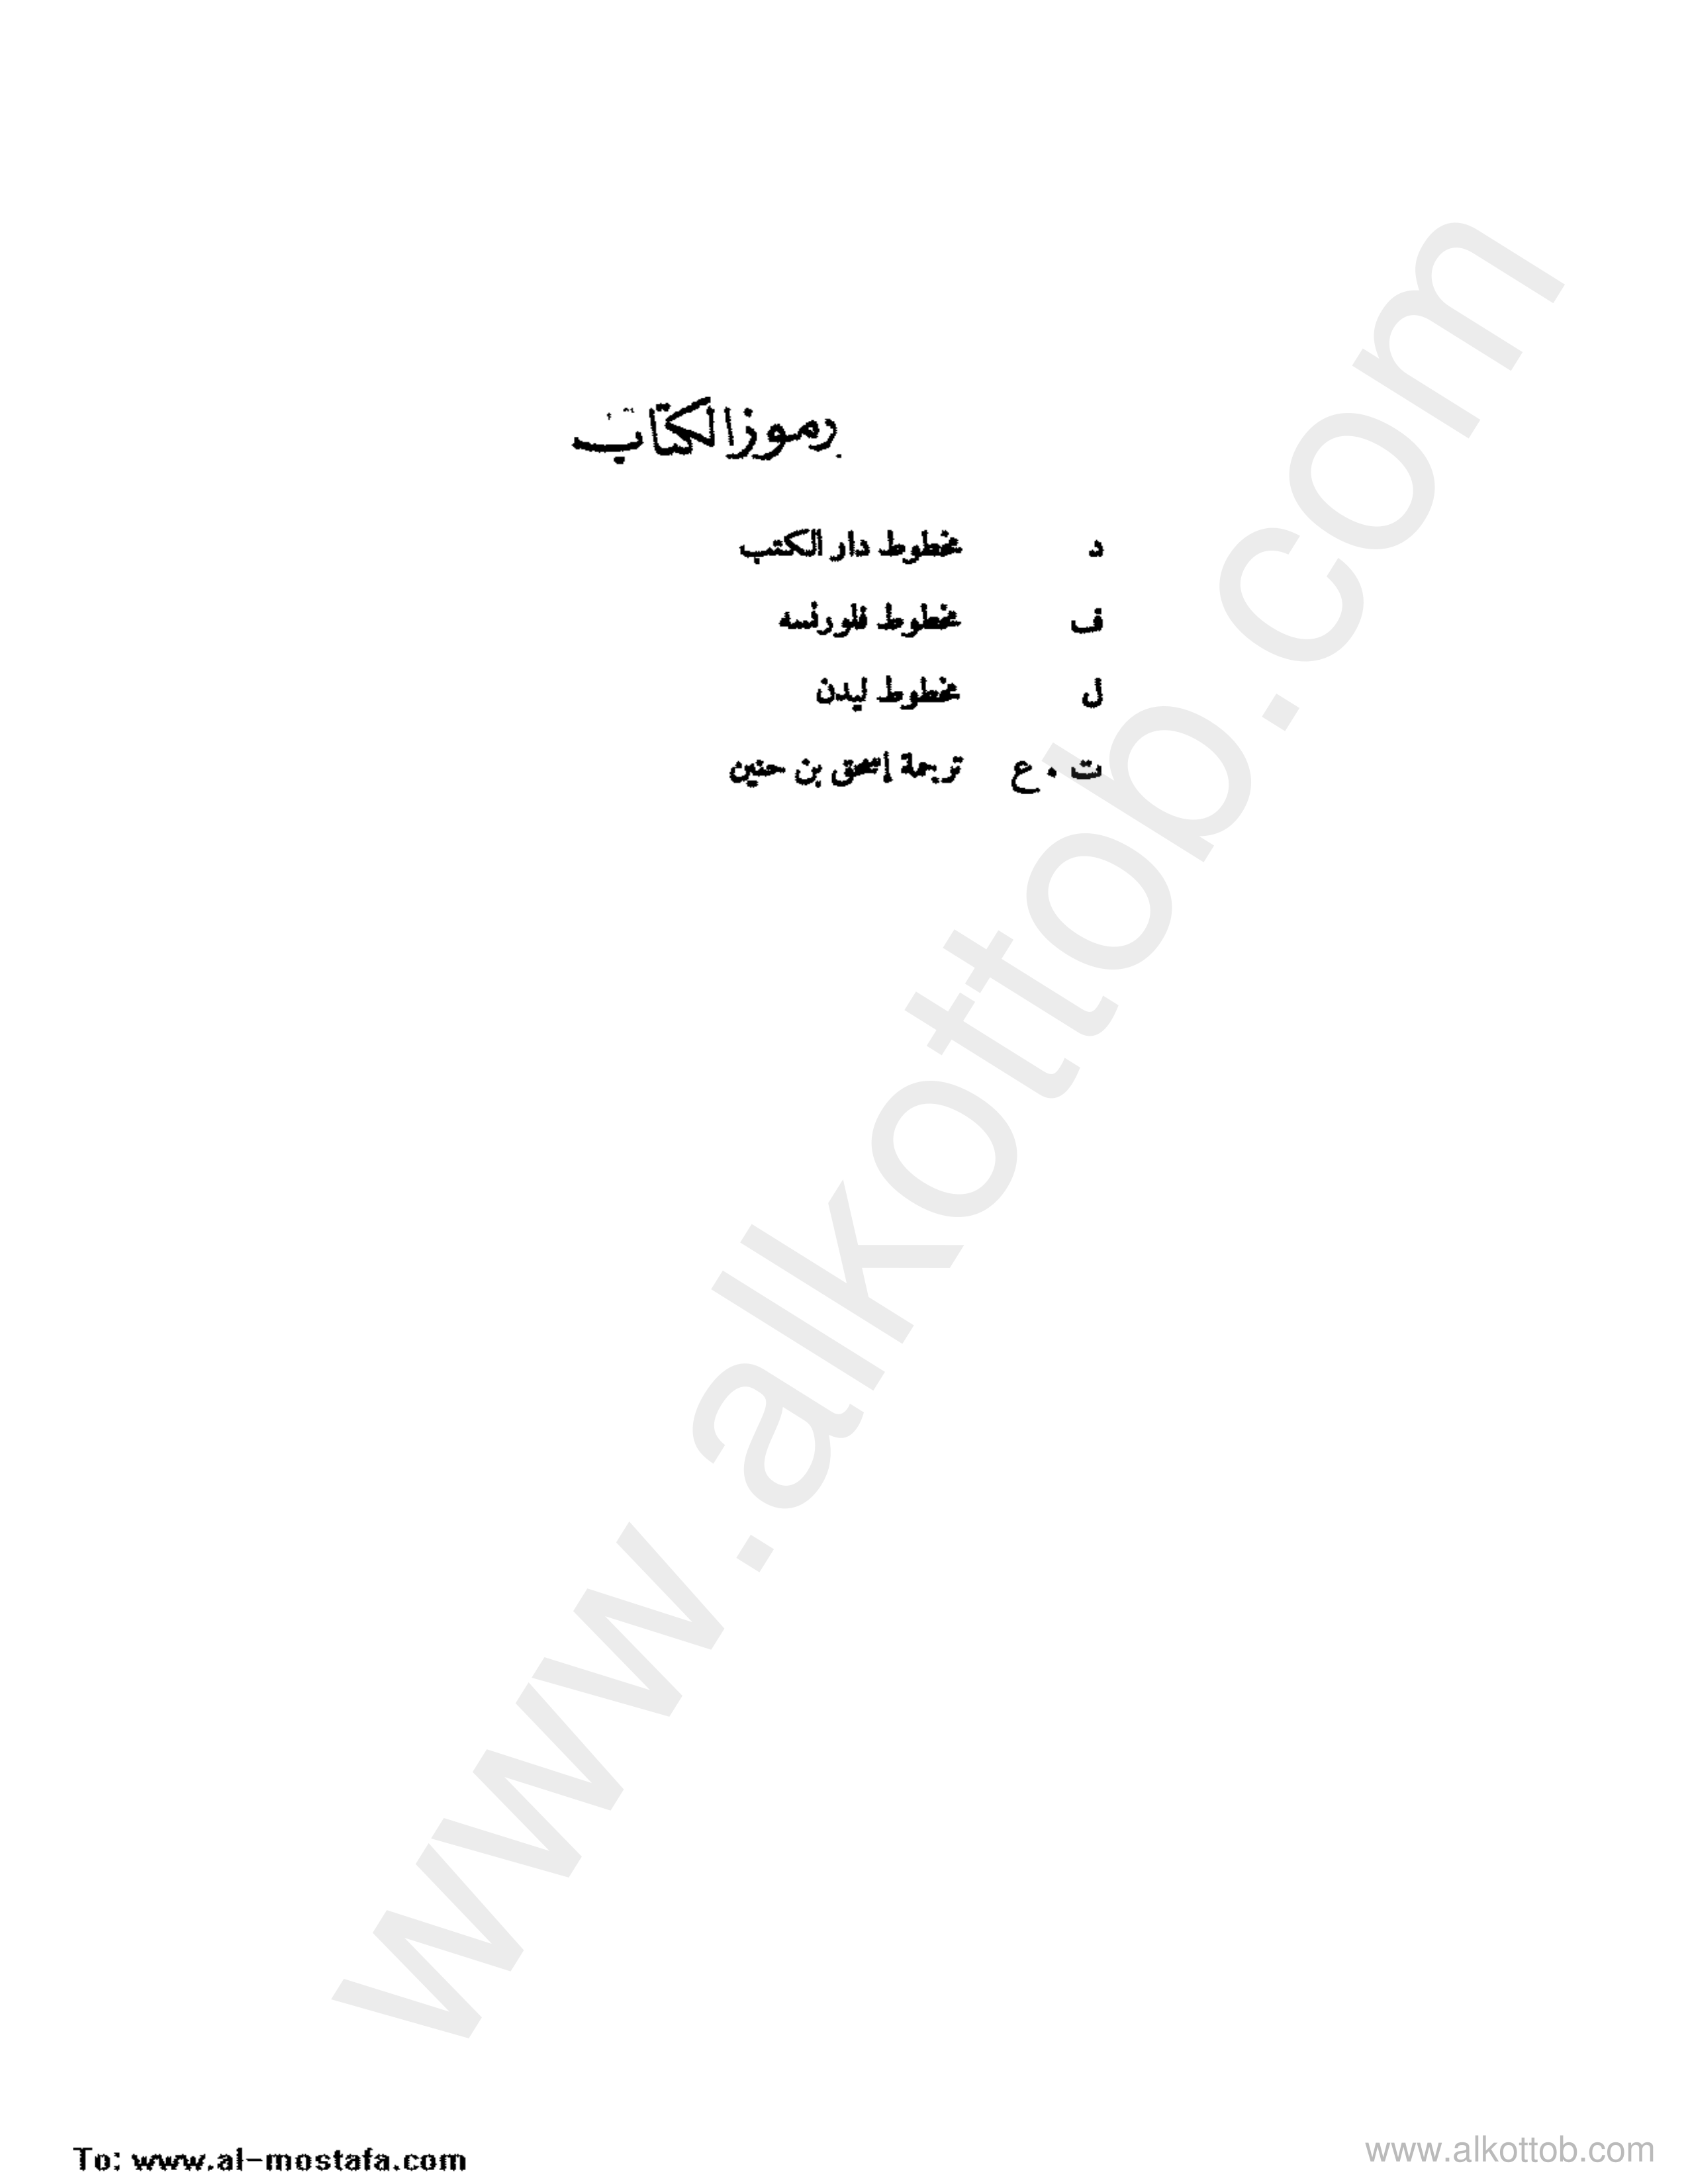 رموز الكتاب
د مخطوط دار الكتب
ف مخطوط فلورنسه
ل مخطوط ليدن
ت . ع ترجمة إسحق بن حنين
www.alkottob.com
To: www.al-mostafa.com
www.alkottob.com